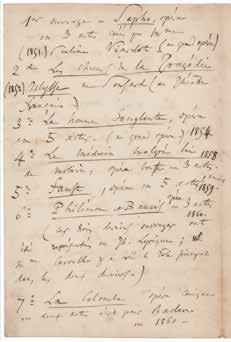 1er ouvrage – Sapho, opéra
en 3 actes
(1851) Pauline Viardot (au grand opéra)
2e Les chœurs de la Tragédie
(1852) Ulysse de Ponsard (au Théâtre
Français)
3e La nonne Sanglante, opéra
en 5 actes (au grand opéra) 1854
4e Le Médecin malgré lui 1858
de Molière, opéra bouffe en 3 actes
5e Faust, opéra en 5 actes 1859
6e Philémon et Baucis en 3 actes
1860
(ces trois derniers ouvrages ont
été représentés au Th. Lyrique ; et
Mme Carvalho y a créé le rôle principal
dans les deux derniers)
7e La Colombe opéra comique
en deux actes pour Baden
en 1860 –